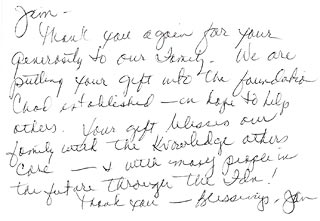 Jam -
Thank you again for your
generosity to our family. We are
putting your gift into the foundation
Chad established - in hope to help
others. Your gift blesses our
family with the knowledge others
care - & will many people in
the future through the Fdn!
Thank you - blessings, Jan